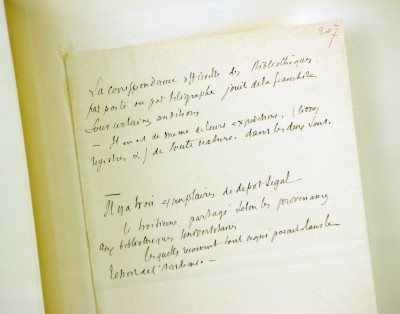 207
La correspondance officielle des Bibliothèques
par poste ou par télégraphe jouit de la franchise
sous certaines conditions
— Il en est de meme de leurs expéditions. (livres
registres &) de toute nature. dans les deux sens.
Il y a trois exemplaires de depot legal
le troisieme partagé selon les provenances
aux bibliotheques universitaires
lesquelles recoivent tout ce qui parait dans le
ressort de l'Academie. —